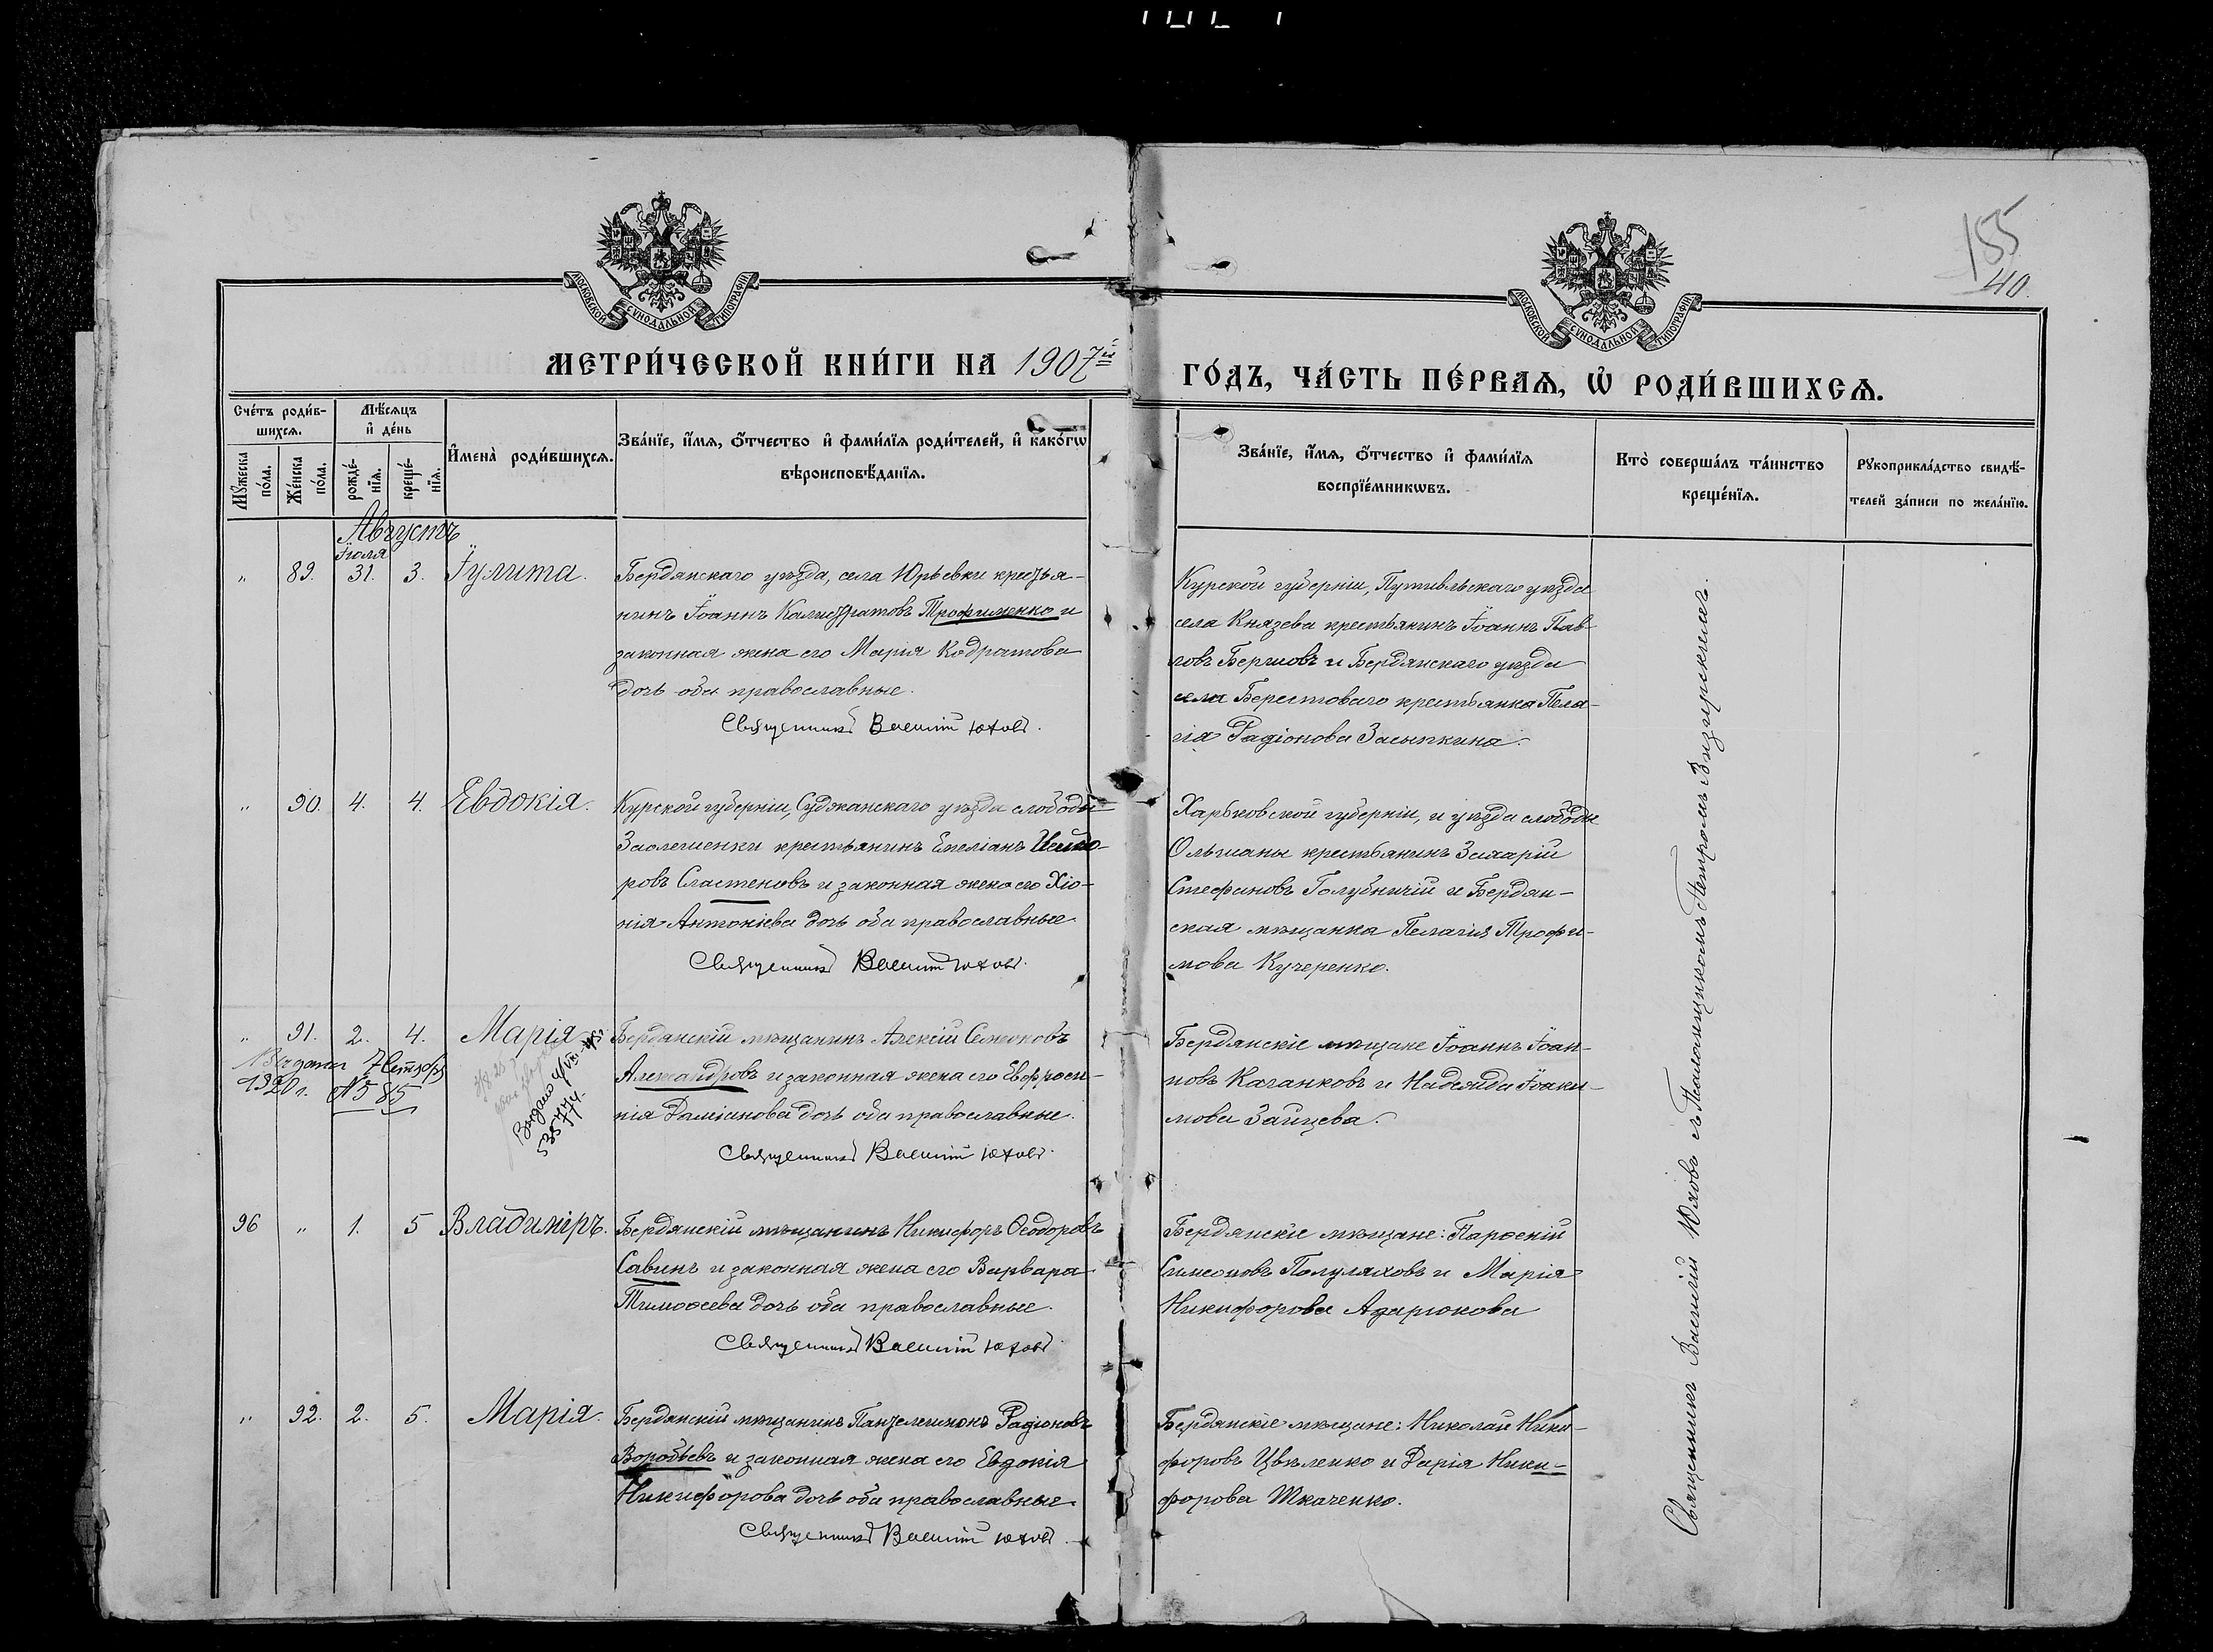 155
40.
МОСКОВСКОЙ СѴНОДАЛЬНОЙ ТИПОГРАФІИ
МОСКОВСКОЙ СѴНОДАЛЬНОЙ ТИПОГРАФІИ
МЕТРИ́ЧЕСКОЙ КНИ́ГИ НА 1907й
ГО́ДЪ, ЧА́СТЬ ПЕ́РВАЯ, Ѡ҆ РОДИ́ВШИХСЯ.
Сче́тъ роди́в-
шихся.
Мѣ́сяцъ
и҆ де́нь
Мꙋ́жеска
по́ла.
Же́нска
по́ла.
рожде́-
нїя.
креще́-
нїя.
И҆мена̀ роди́вшихся.
Зва́нїе, и҆́мя, ѻ҆́тчество и҆ фами́лїя роди́телей, и҆ како́гѡ
вѣроисповѣ́данїя.
Зва́нїе, и҆́мя, ѻ҆́тчество и҆ фами́лїя
воспрїе́мникѡвъ.
Кто̀ соверша́лъ та́инство
креще́нїя.
Рꙋкоприкла́дство свидѣ́-
телей за́писи по жела́нїю.
Августъ
Іюля
„ 89. 31. 3. Іулита.
Бердянскаго уѣзда, села Юрьевки крестья-
нинъ Іоаннъ Калистратовъ Трофименко и
законная жена его Марія Кодратова
дочь оба православные.
Священникъ Василій Юховъ.
Курской губерніи, Путивльскаго уѣзда
села Князева крестьянинъ Іоаннъ Пав-
ловъ и Бердянскаго уѣзда
села Берестоваго крестьянка Пела-
гія Радіонова Засыпкина.
„ 90. 4. 4. Евдокія.
Курской губерніи, Суджанскаго уѣзда слободы
Заолешенки крестьянинъ Емеліанъ Исидо-
ровъ Сластеновъ и законная жена его Хіо-
нія Антоніева дочь оба православные
Священникъ Василій Юховъ.
Харьковской губерніи, и уѣзда слободы
Ольшаны крестьянинъ Захарій
Стефановъ Голубничій и Бердян-
ская мѣщанка Пелагія Трофи-
мова Кучеренко.
„ 91. 2. 4. Марія
7
1920 г. № 585
Выдано
Бердянскій мѣщанинъ Алексій Семеоновъ
Александровъ и законная жена его Евфроси-
нія Даміанова дочь оба православные.
Священникъ Василій Юховъ.
Бердянскіе мѣщане Іоаннъ Іоан-
новъ Каганковъ и Надежда Іоаки-
мова Зайцева.
96 „ 1. 5 Владиміръ.
Бердянскій мѣщанинъ Никифоръ Ѳеодоровъ
Савинъ и законная жена его Варвара
Тимоѳеева дочь оба православные.
Священникъ Василій Юховъ.
Бердянскіе мѣщане: Парѳеній
Симеоновъ Полуляховъ и Марія
Никифорова Азарюкова
„ 92. 2. 5. Марія.
Бердянскій мѣщанинъ Пантелеимонъ Радіоновъ
Воробьевъ и законная жена его Евдокія
Никифорова дочь оба православные.
Священникъ Василій Юховъ.
Бердянскіе мѣщане: Николай Ники-
форовъ Цвѣленко и Дарія Ники-
форова Ткаченко.
Священникъ Василій Юховъ съ Псаломщикомъ Петромъ